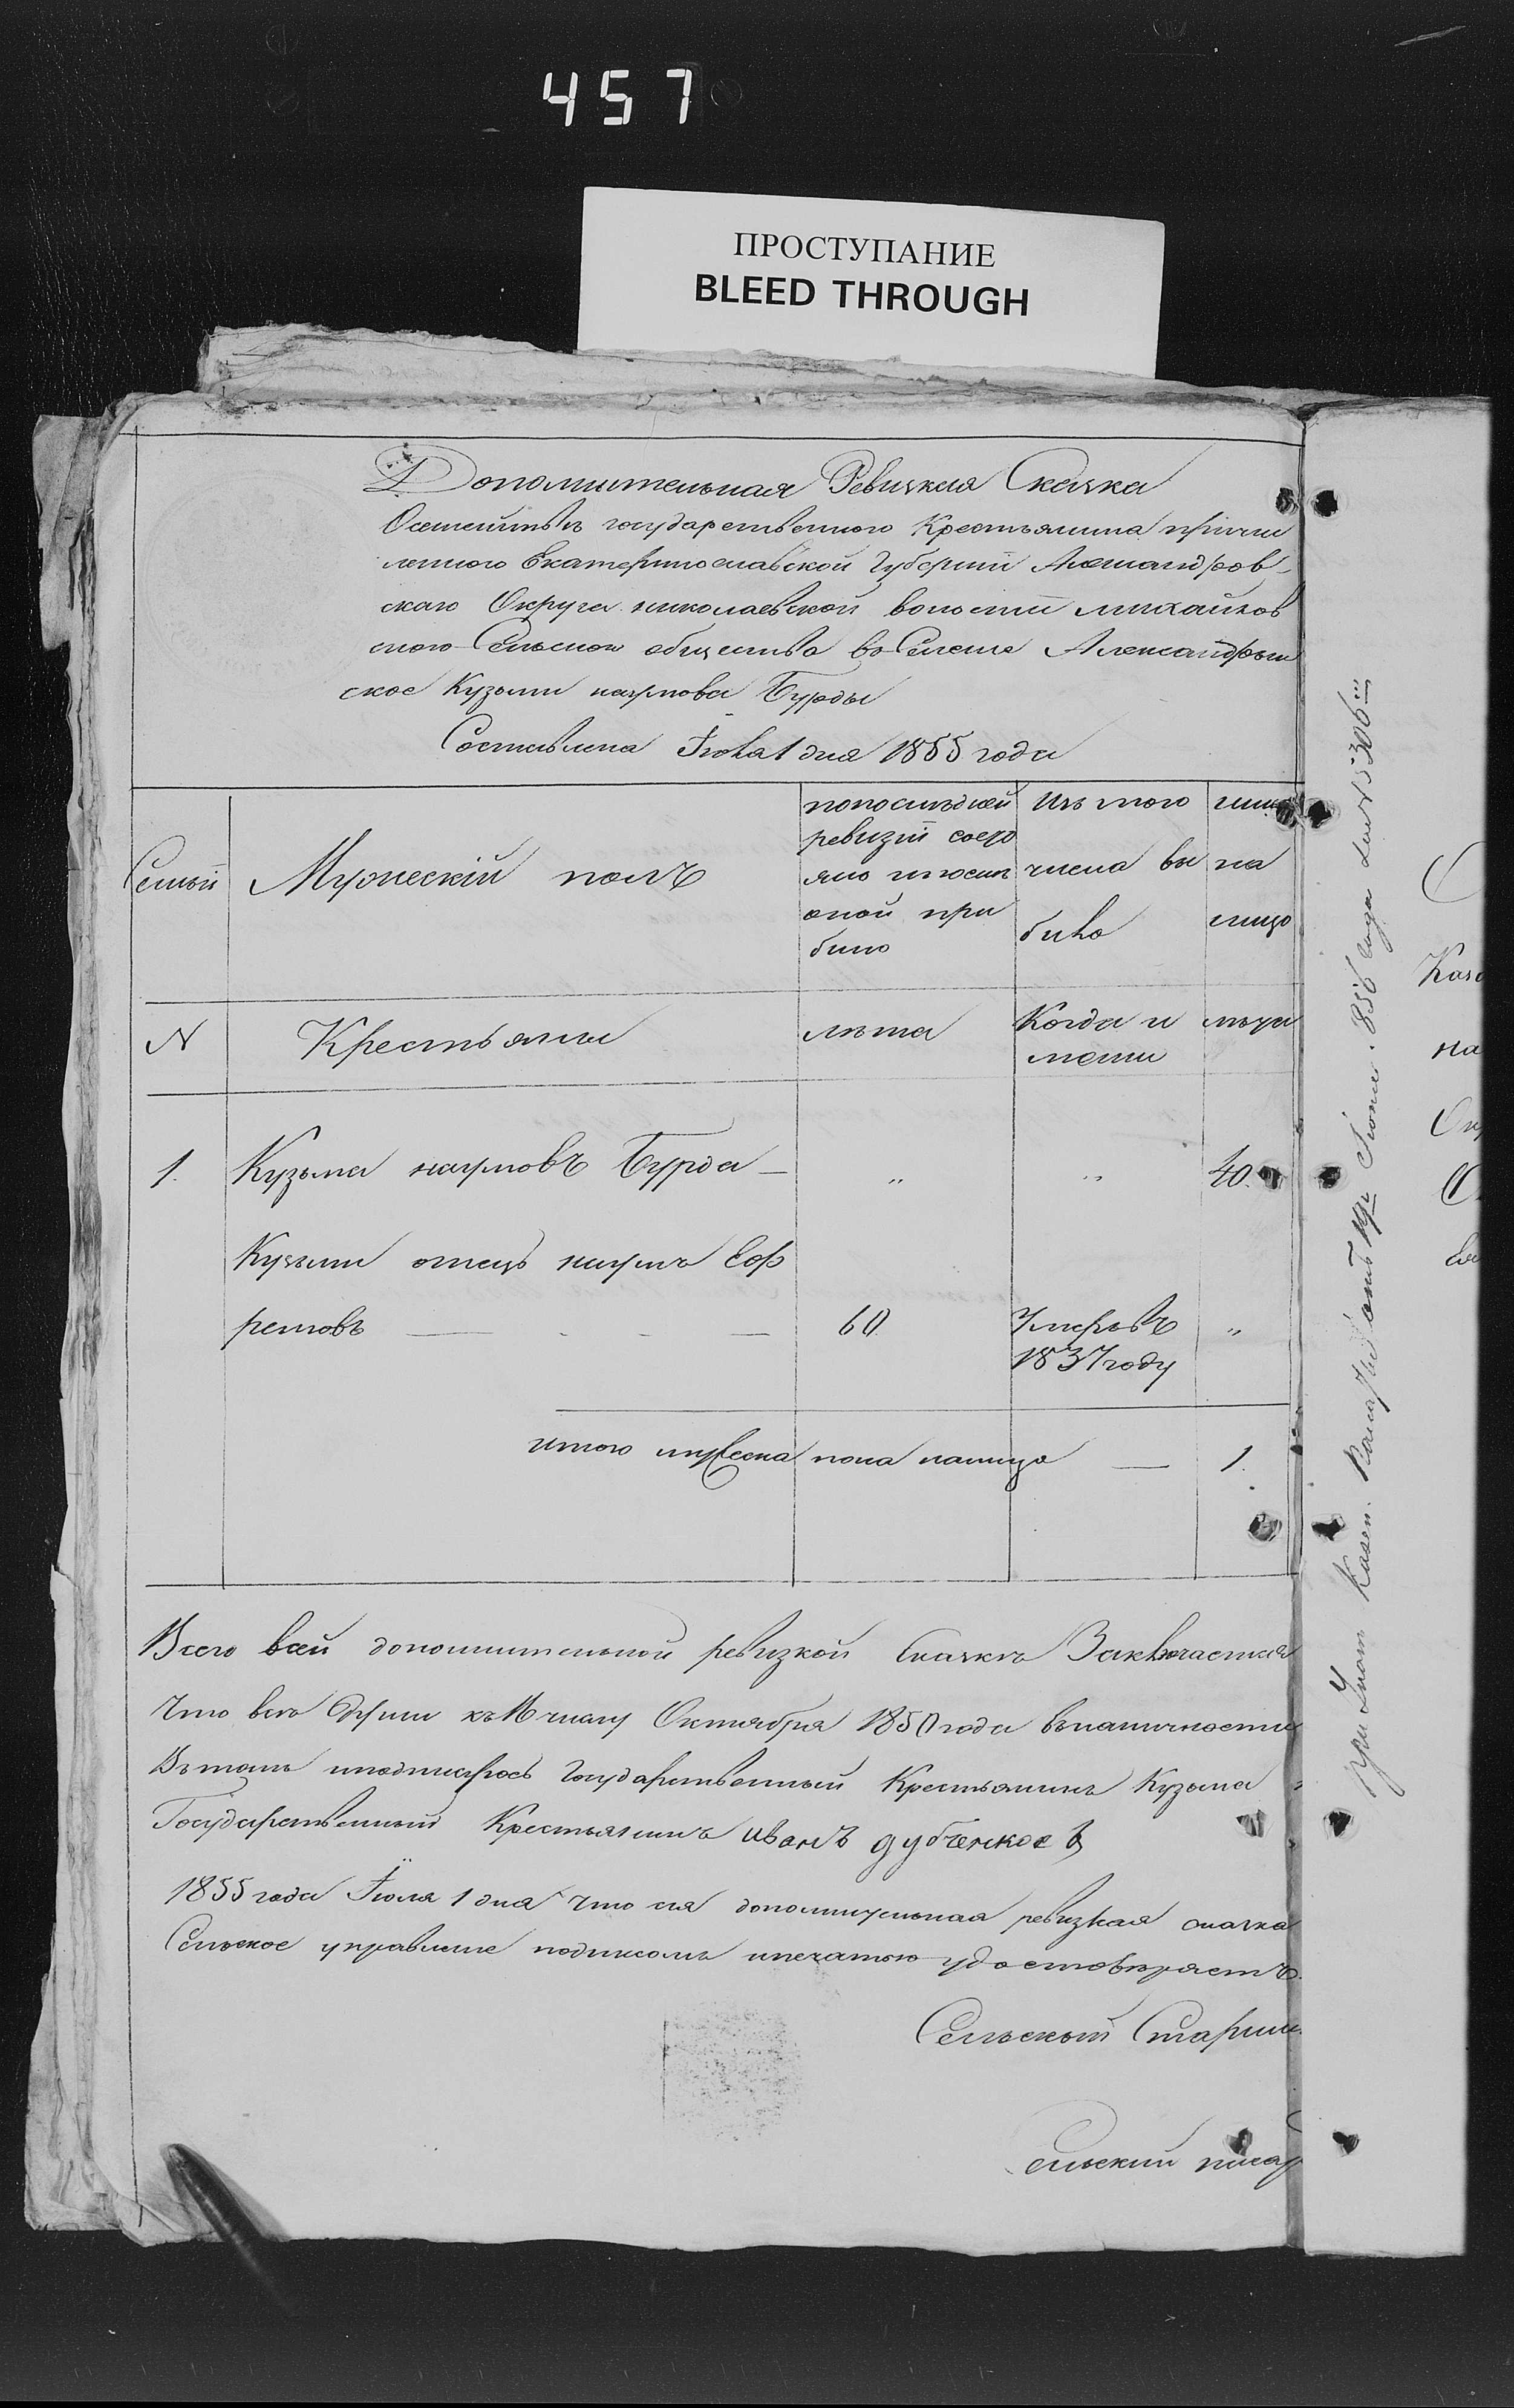 457
ПРОСТУПАНИЕ
BLEED THROUGH
Дополнительная Ревизкая Сказка
Осемействѣ государственного Крестьянина причис
леного Екатеринославской Губерніи Александров-
скаго Округа николаевской волости михайлов
ского Сельскои общества во Селенiе Александрын
ское Кузьми наумова Бурды
Составлена Іюля 1 дня 1855 года
Семьи
Мужескій полъ
попоследней ревизіи состо яло ипосли оной при било
Изъ того числа вы било
ни на лицо
N
Крестьяни
лѣта
Когда и
лѣта
1. Кузьма наумовъ Бурда — „ „ 40.
Кузьми отецъ наумъ Еф
ремовъ — 60 Умеръ въ 1837 году „
итого мужеска пола налицо — 1.
Всего всей дополнительной ревизкой Сказкѣ Заключается
Что все Души къ числу Октября 1850 года вналичности
Въ томъ иподписуюсь Государственный Крестьянинъ Кузьма
Государственный Крестьянинъ иванъ дубченкоев
1855 года Іюля 1 дня Что сия дополнительная ревизкая сказка
Сельское управление подписомъ ипечатью удостовѣряетъ.
Сельскый Старшин
Сельский писар
При Указ. Казен. Палаты отъ 19го Іюня 1856 года за № 5306мъ
Каз
на
Ок